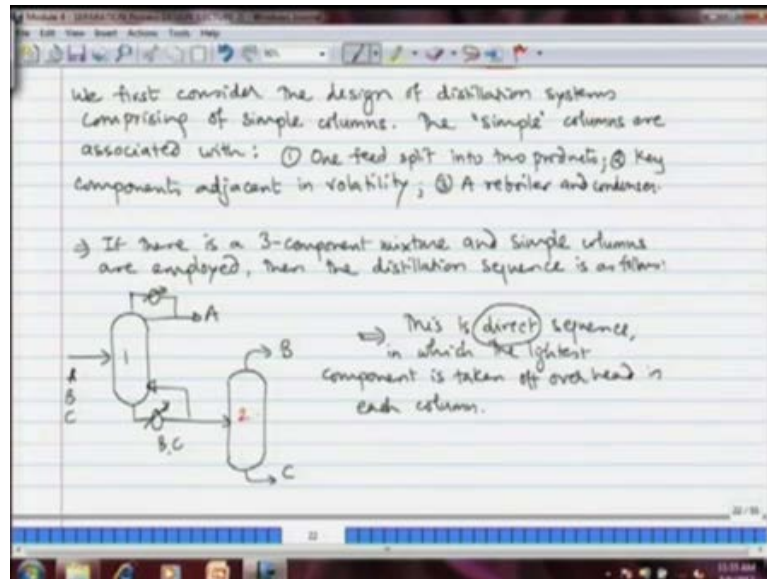 Module 4 - SEPARATION
File Edit View Insert Actions Tools Help
We first consider the design of distillation systems
comprising of simple columns. The "simple" columns are
associated with: ① One feed split into two products; ② Key
components adjacent in volatility; ③ A reboiler and condenser.
⇒ If there is a 3-component mixture and simple columns
are employed, then the distillation sequence is as follows:
A
1
A
B
C
B
2
B,C
C
⇒ This is direct sequence,
in which the lightest
component is taken off overhead in
each column.
22
11:55 AM